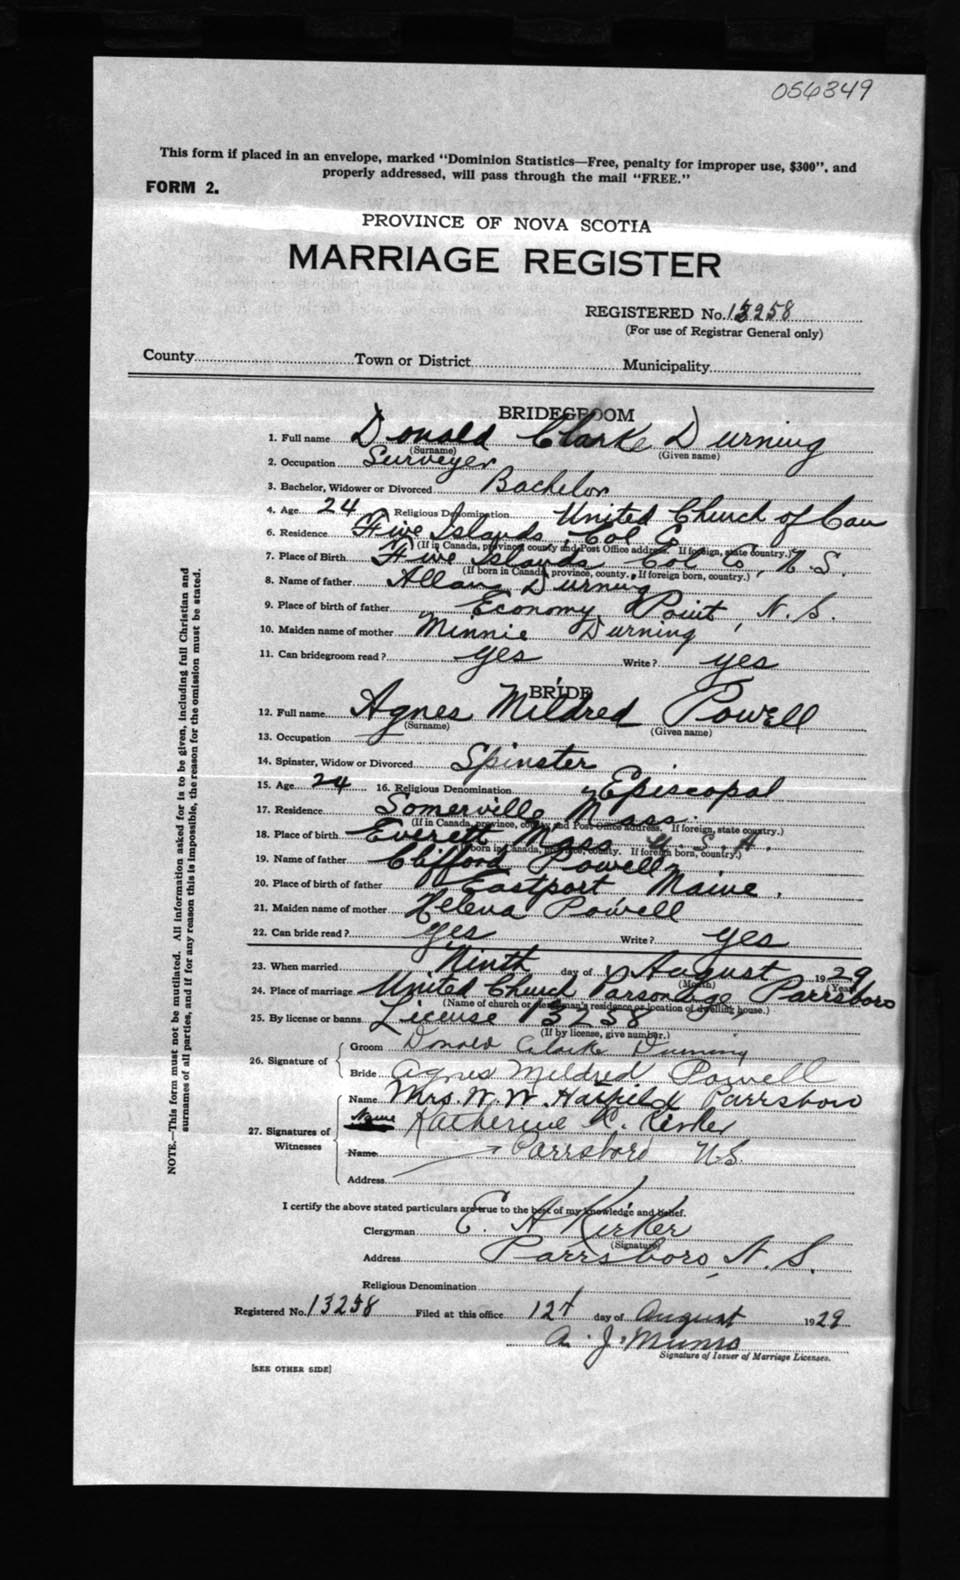 056349
This form if placed in an envelope, marked "Dominion Statistics—Free, penalty for improper use, $300", and
properly addressed, will pass through the mail "FREE."
FORM 2.
PROVINCE OF NOVA SCOTIA
MARRIAGE REGISTER
REGISTERED No. 13258
(For use of Registrar General only)
County Town or District Municipality
BRIDEGROOM
1. Full name Donald Clarke Durning
(Surname) (Given name)
2. Occupation Surveyer
3. Bachelor, Widower or Divorced Bachelor
4. Age 24 Religious Denomination United Church of Can
6. Residence Five Islands, Col Co
(If in Canada, province county and Post Office address. If foreign, state country.)
7. Place of Birth Five Islands Col Co, N.S.
(If born in Canada, province, county. If foreign born, country.)
8. Name of father Allan Durning
9. Place of birth of father Economy Point, N.S.
10. Maiden name of mother Minnie Durning
11. Can bridegroom read? yes Write? yes
BRIDE
12. Full name Agnes Mildred Powell
(Surname) (Given name)
13. Occupation
14. Spinster, Widow or Divorced Spinster
15. Age 24 16. Religious Denomination Episcopal
17. Residence Somerville Mass.
(If in Canada, province, county and Post Office address. If foreign, state country.)
18. Place of birth Everett Mass U.S.A.
(If born in Canada, province, county. If foreign born, country.)
19. Name of father Clifford Powell
20. Place of birth of father Eastport Maine.
21. Maiden name of mother Helena Powell
22. Can bride read? yes Write? yes
23. When married Ninth day of August 1929
(Month) (Year)
24. Place of marriage United Church Parsonage, Parrsboro
(Name of church or clergyman's residence or location of dwelling house.)
25. By license or banns License 13258
(If by license, give number.)
26. Signature of
Groom Donald Clarke Durning
Bride Agnes Mildred Powell
27. Signatures of Witnesses
Name Mrs. W. W. Hatfield Parrsboro
Name Katherine R. Kirker
Name Parrsboro N.S.
Address
I certify the above stated particulars are true to the best of my knowledge and belief.
Clergyman E. A Kirker
(Signature)
Address Parrsboro, N.S.
Religious Denomination
Registered No. 13258 Filed at this office 12th day of August 1929
A. J. Munro
Signature of Issuer of Marriage Licenses.
[SEE OTHER SIDE]
NOTE.—This form must not be mutilated. All information asked for is to be given, including full Christian and
surnames of all parties, and if for any reason this is impossible, the reason for the omission must be stated.